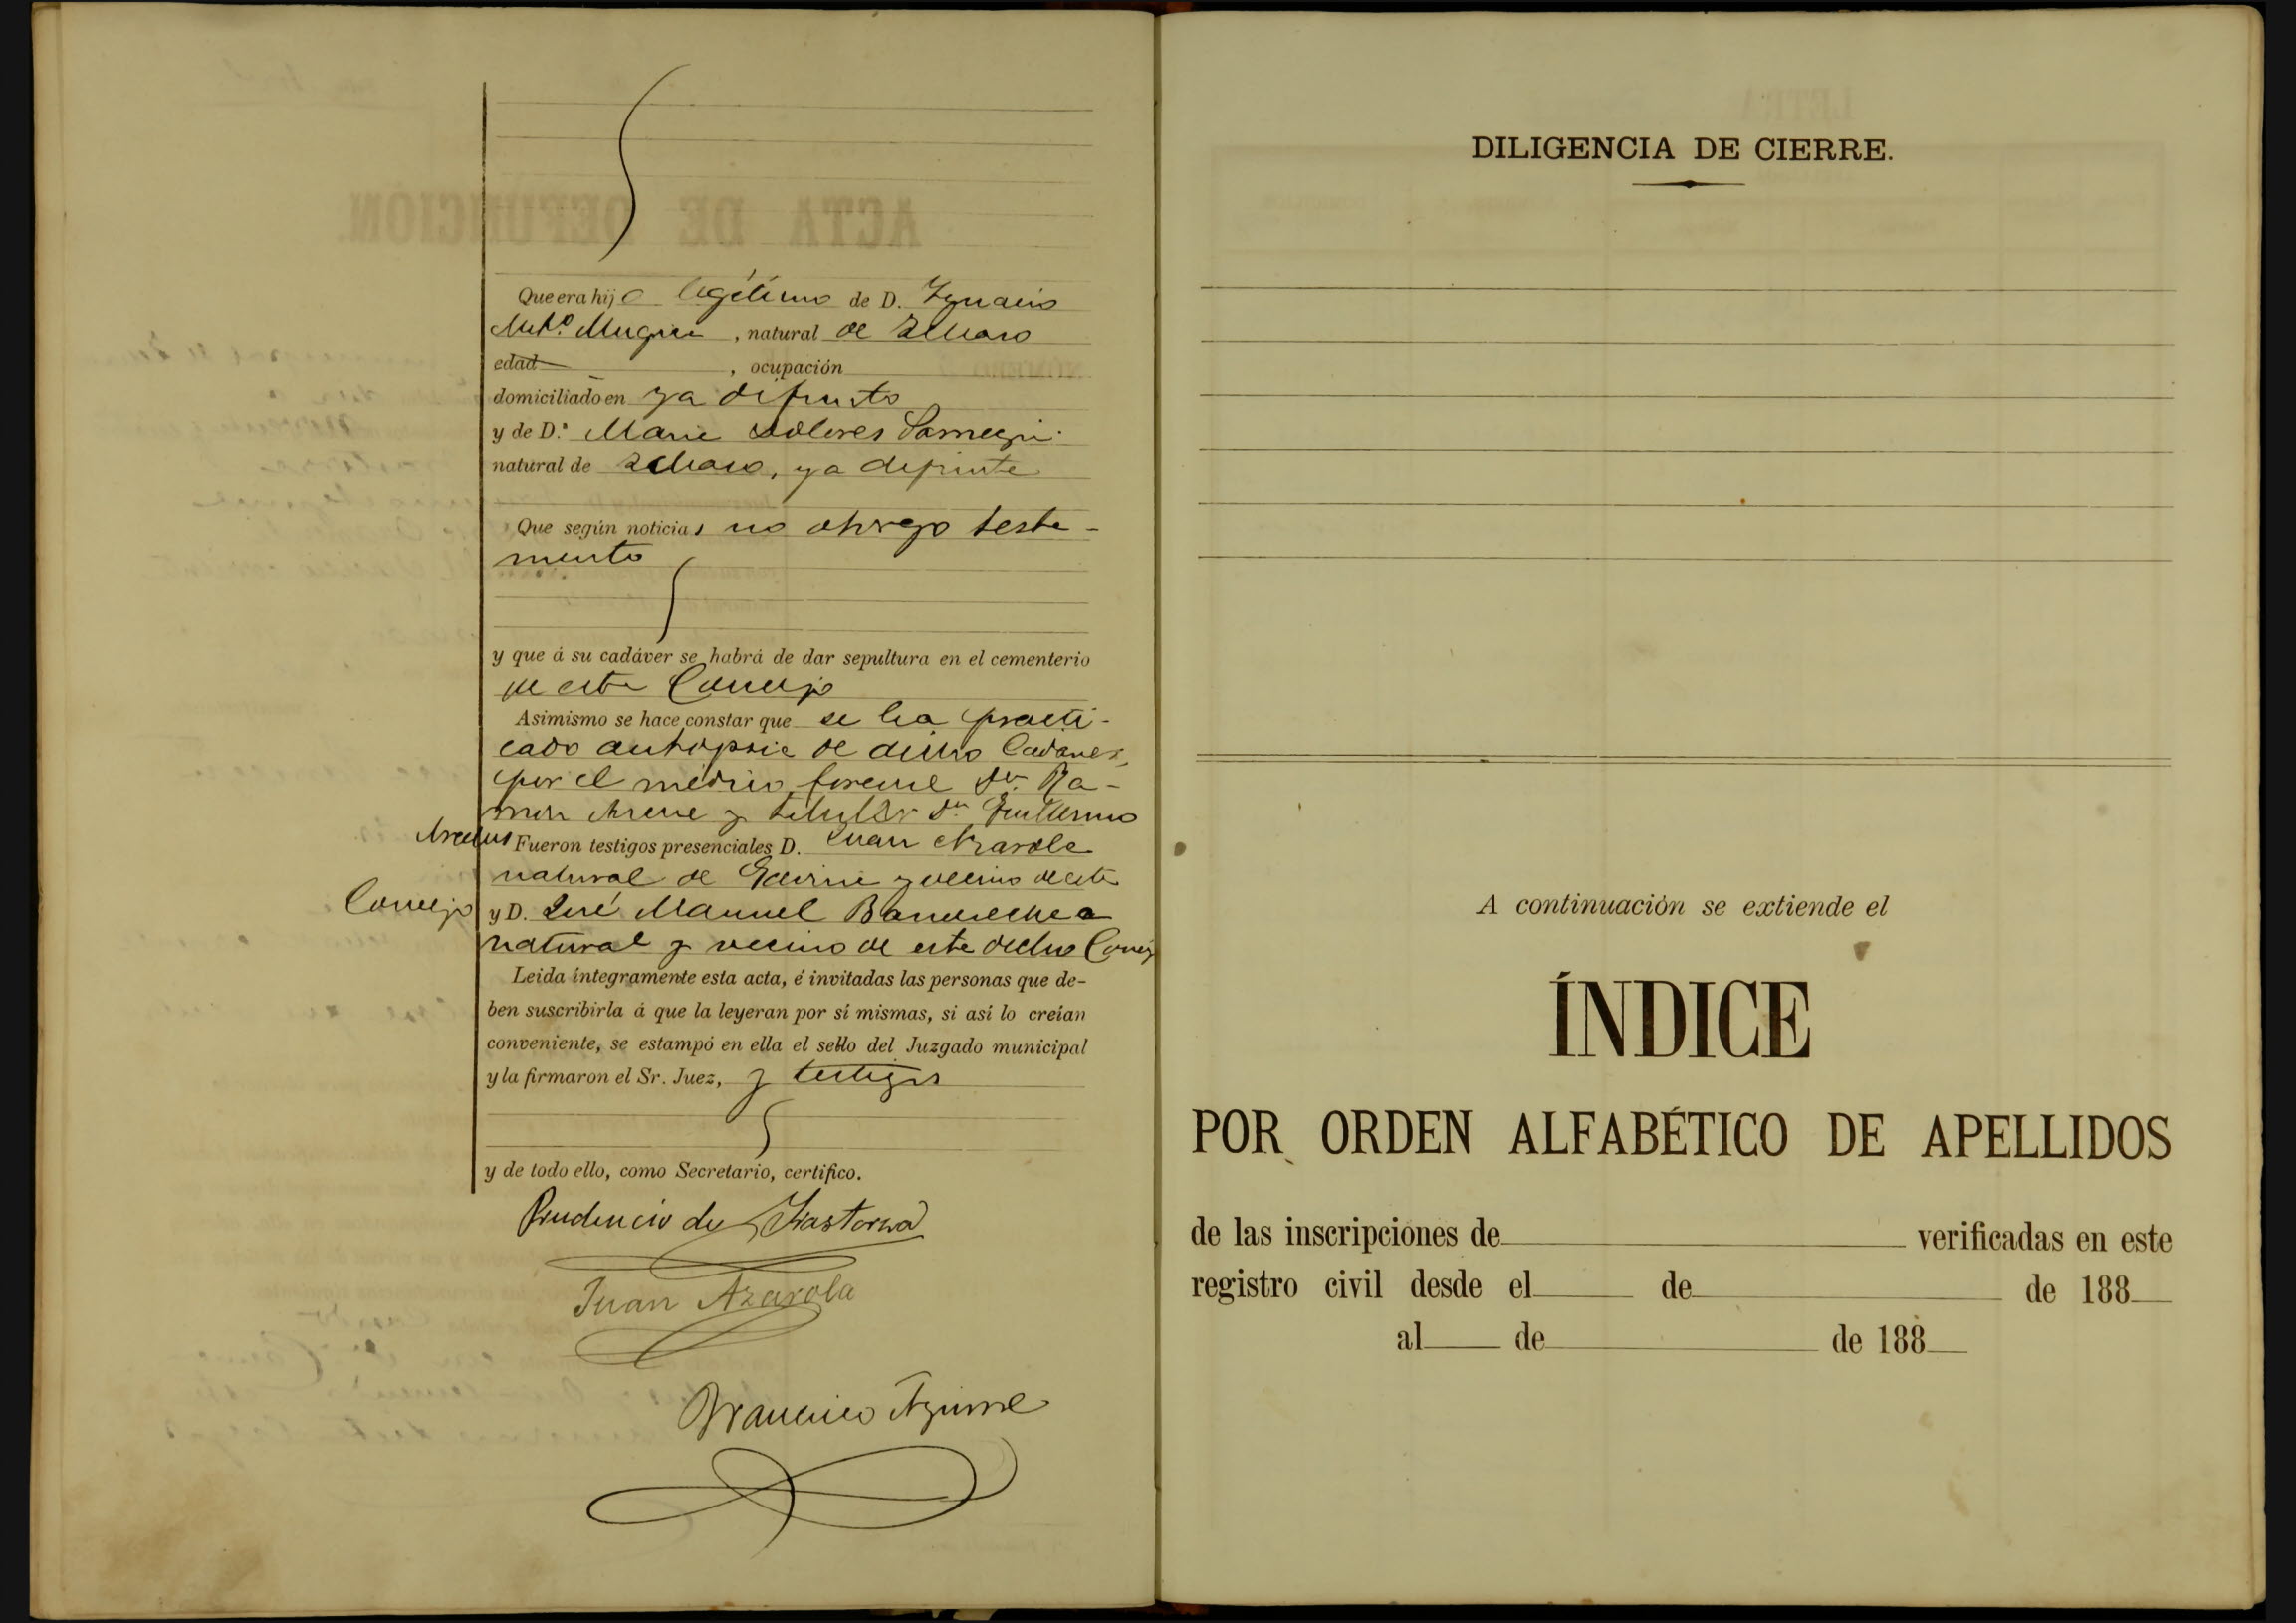 Que era hijo legítimo de D. Ignacio
Ant.º Mugica, natural de
edad , ocupación
domiciliado en ya difunto
y de D.ª Maria Dolores
natural de , ya difunta
Que según noticias no otorgo testa-
mento
y que á su cadáver se habrá de dar sepultura en el cementerio
de este Concejo
Asimismo se hace constar que se ha practi-
cado autopsia de dicho Cadaver,
por el médico forense Dn. Ra-
mon y titular Dn. Guillermo
Fueron testigos presenciales D. Juan Azarola
natural de y vecino de este
Concejo y D. José Manuel
natural y vecino de este dicho Concejo
Leida íntegramente esta acta, é invitadas las personas que de-
ben suscribirla á que la leyeran por sí mismas, si así lo creían
conveniente, se estampó en ella el sello del Juzgado municipal
y la firmaron el Sr. Juez, y testigos
y de todo ello, como Secretario, certifico.
Prudencio de
Juan Azarola
Francisco Aguirre
DILIGENCIA DE CIERRE.
A continuación se extiende el
ÍNDICE
POR ORDEN ALFABÉTICO DE APELLIDOS
de las inscripciones de verificadas en este
registro civil desde el de de 188
al de de 188